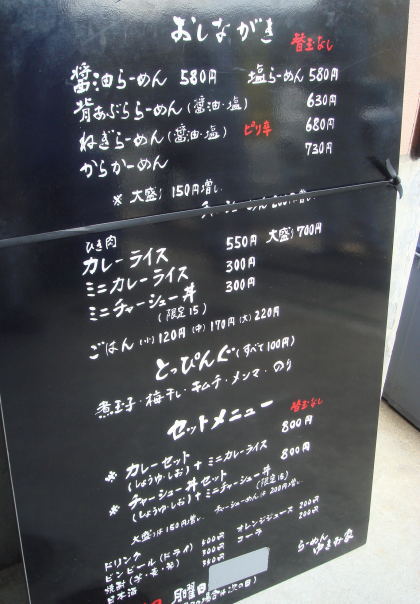 おしながき 替玉なし
醤油らーめん 580円 塩らーめん 580円
背あぶららーめん(醤油・塩) 630円
ねぎらーめん(醤油・塩) ピリ辛 680円
からかーめん 730円
※ 大盛り 150円増し
ひき肉
カレーライス 550円 大盛り 700円
ミニカレーライス 300円
ミニチャーシュー丼 300円
(限定15)
ごはん (小)120円 (中)170円 (大)220円
とっぴんぐ(すべて100円)
煮玉子・梅干し・キムチ・メンマ・のり
セットメニュー 替玉なし
※ カレーセット 800円
(しょうゆ・しお)+ミニカレーライス
※ チャーシュー丼セット 800円
(しょうゆ・しお)+ミニチャーシュー丼
(限定15)
大盛りは150円増し チャーシューめんは200円増し
ドリンク オレンジジュース 200円
ビンビール(ドライ) 500円 コーラ 200円
焼酎(芋・麦・
日本酒
らーめん
月曜日
の場合は次の日)